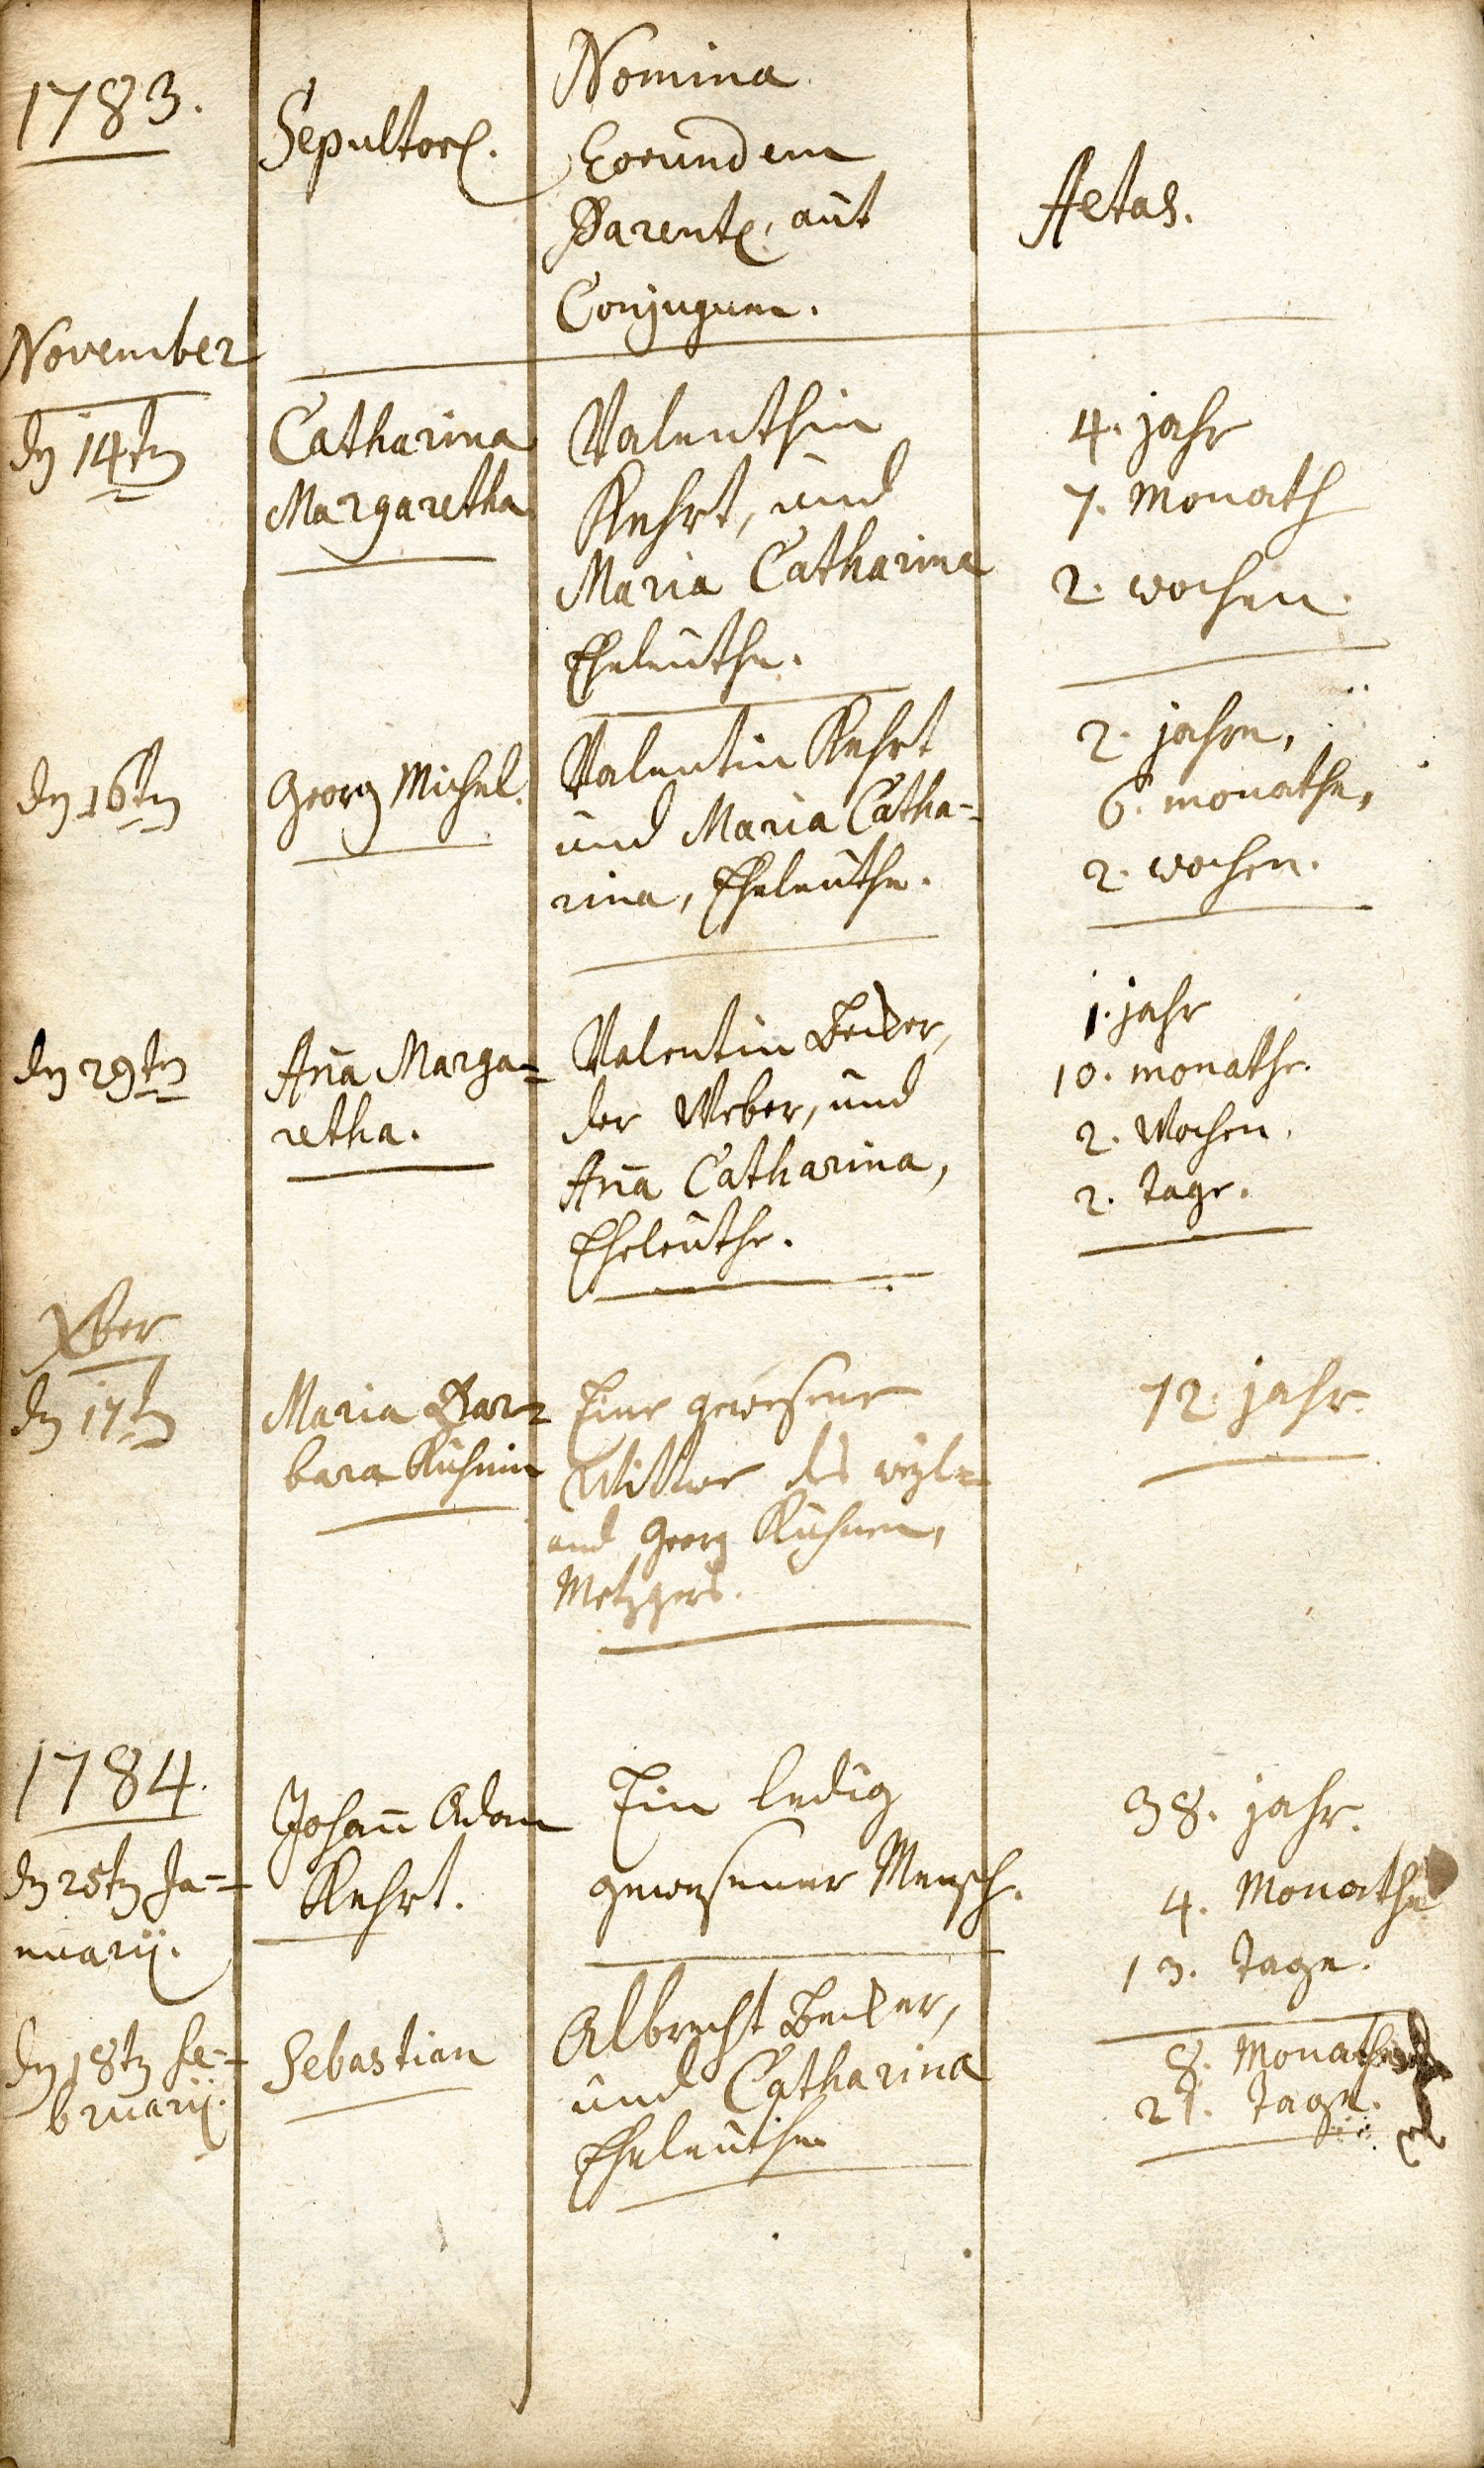 1783.
Sepultor.
Nomina
Eorundem
Parent. aut
Conjugum.
Aetas.
November
den 14ten
Catharina
Margaretha
Valenthin
Kehrt, und
Maria Catharina
Eheleuthe.
4. jahr
7. Monath
2. wochen.
den 16ten
Georg Michel.
Valentin Kehrt
und Maria Catha-
rina, Eheleuthe.
2. jahre,
6. monathe,
2. wochen.
den 29ten
Aña Marga-
retha.
Valentin Becker,
der Weber, und
Aña Catharina,
Eheleuthe.
1. jahr
10. monathe.
2. Wochen.
2. Tage.
Xber
den 17ten
Maria Bar-
bara Kuhnin
Eine gewesene
Wittwe des weyl-
and Georg Kuhnen,
Metzgers.
72. jahr.
1784.
den 25ten Ja-
nuarij.
Johañ Adam
Kehrt.
Ein ledig
gewesener Mensch.
38. jahr.
4. Monathe
13. Tage.
den 18ten Fe-
bruarij.
Sebastian
Albrecht Becker,
und Catharina
Eheleuthe
8. Monathe
21. Tage.